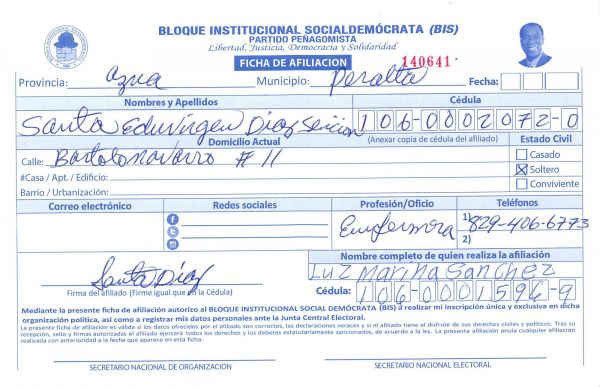 BLOQUE INSTITUCIONAL SOCIALDEMÓCRATA (BIS)
PARTIDO PEÑAGOMISTA
Libertad, Justicia, Democracia y Solidaridad
FICHA DE AFILIACION 140641
Provincia: Azua Municipio: Peralta Fecha:
Nombres y Apellidos Cédula
Santa Eduvirgen Diaz 106-0002072-0
Domicilio Actual (Anexar copia de cédula del afiliado) Estado Civil
Calle: Bartolo Navarro # 11 Casado
#Casa / Apt. / Edificio: Soltero
Barrio / Urbanización: Conviviente
Correo electrónico Redes sociales Profesión/Oficio Teléfonos
Emfermera 1) 829-406-6773
2)
Nombre completo de quien realiza la afiliación
Santa Díaz Luz Marina Sanchez
Firma del afiliado (Firme igual que en la Cédula) Cédula: 106-0001596-9
Mediante la presente ficha de afiliación autorizo al BLOQUE INSTITUCIONAL SOCIAL DEMÓCRATA (BIS) a realizar mi inscripción única y exclusiva en dicha
organización política, así como a registrar mis datos personales ante la Junta Central Electoral.
La presente ficha de afiliación es válida si los datos ofrecidos por el afiliado son correctos, las declaraciones veraces y si el afiliado tiene el disfrute de sus derechos civiles y políticos. Tras su
recepción, sello y firmas autorizados el afiliado ejercerá todos los derechos y los deberes estatutariamente sancionados, de acuerdo a la ley. La presente afiliación anula cualquier afiliación
realizada con anterioridad a la fecha que aparece en esta ficha.
SECRETARIO NACIONAL DE ORGANIZACIÓN SECRETARIO NACIONAL ELECTORAL